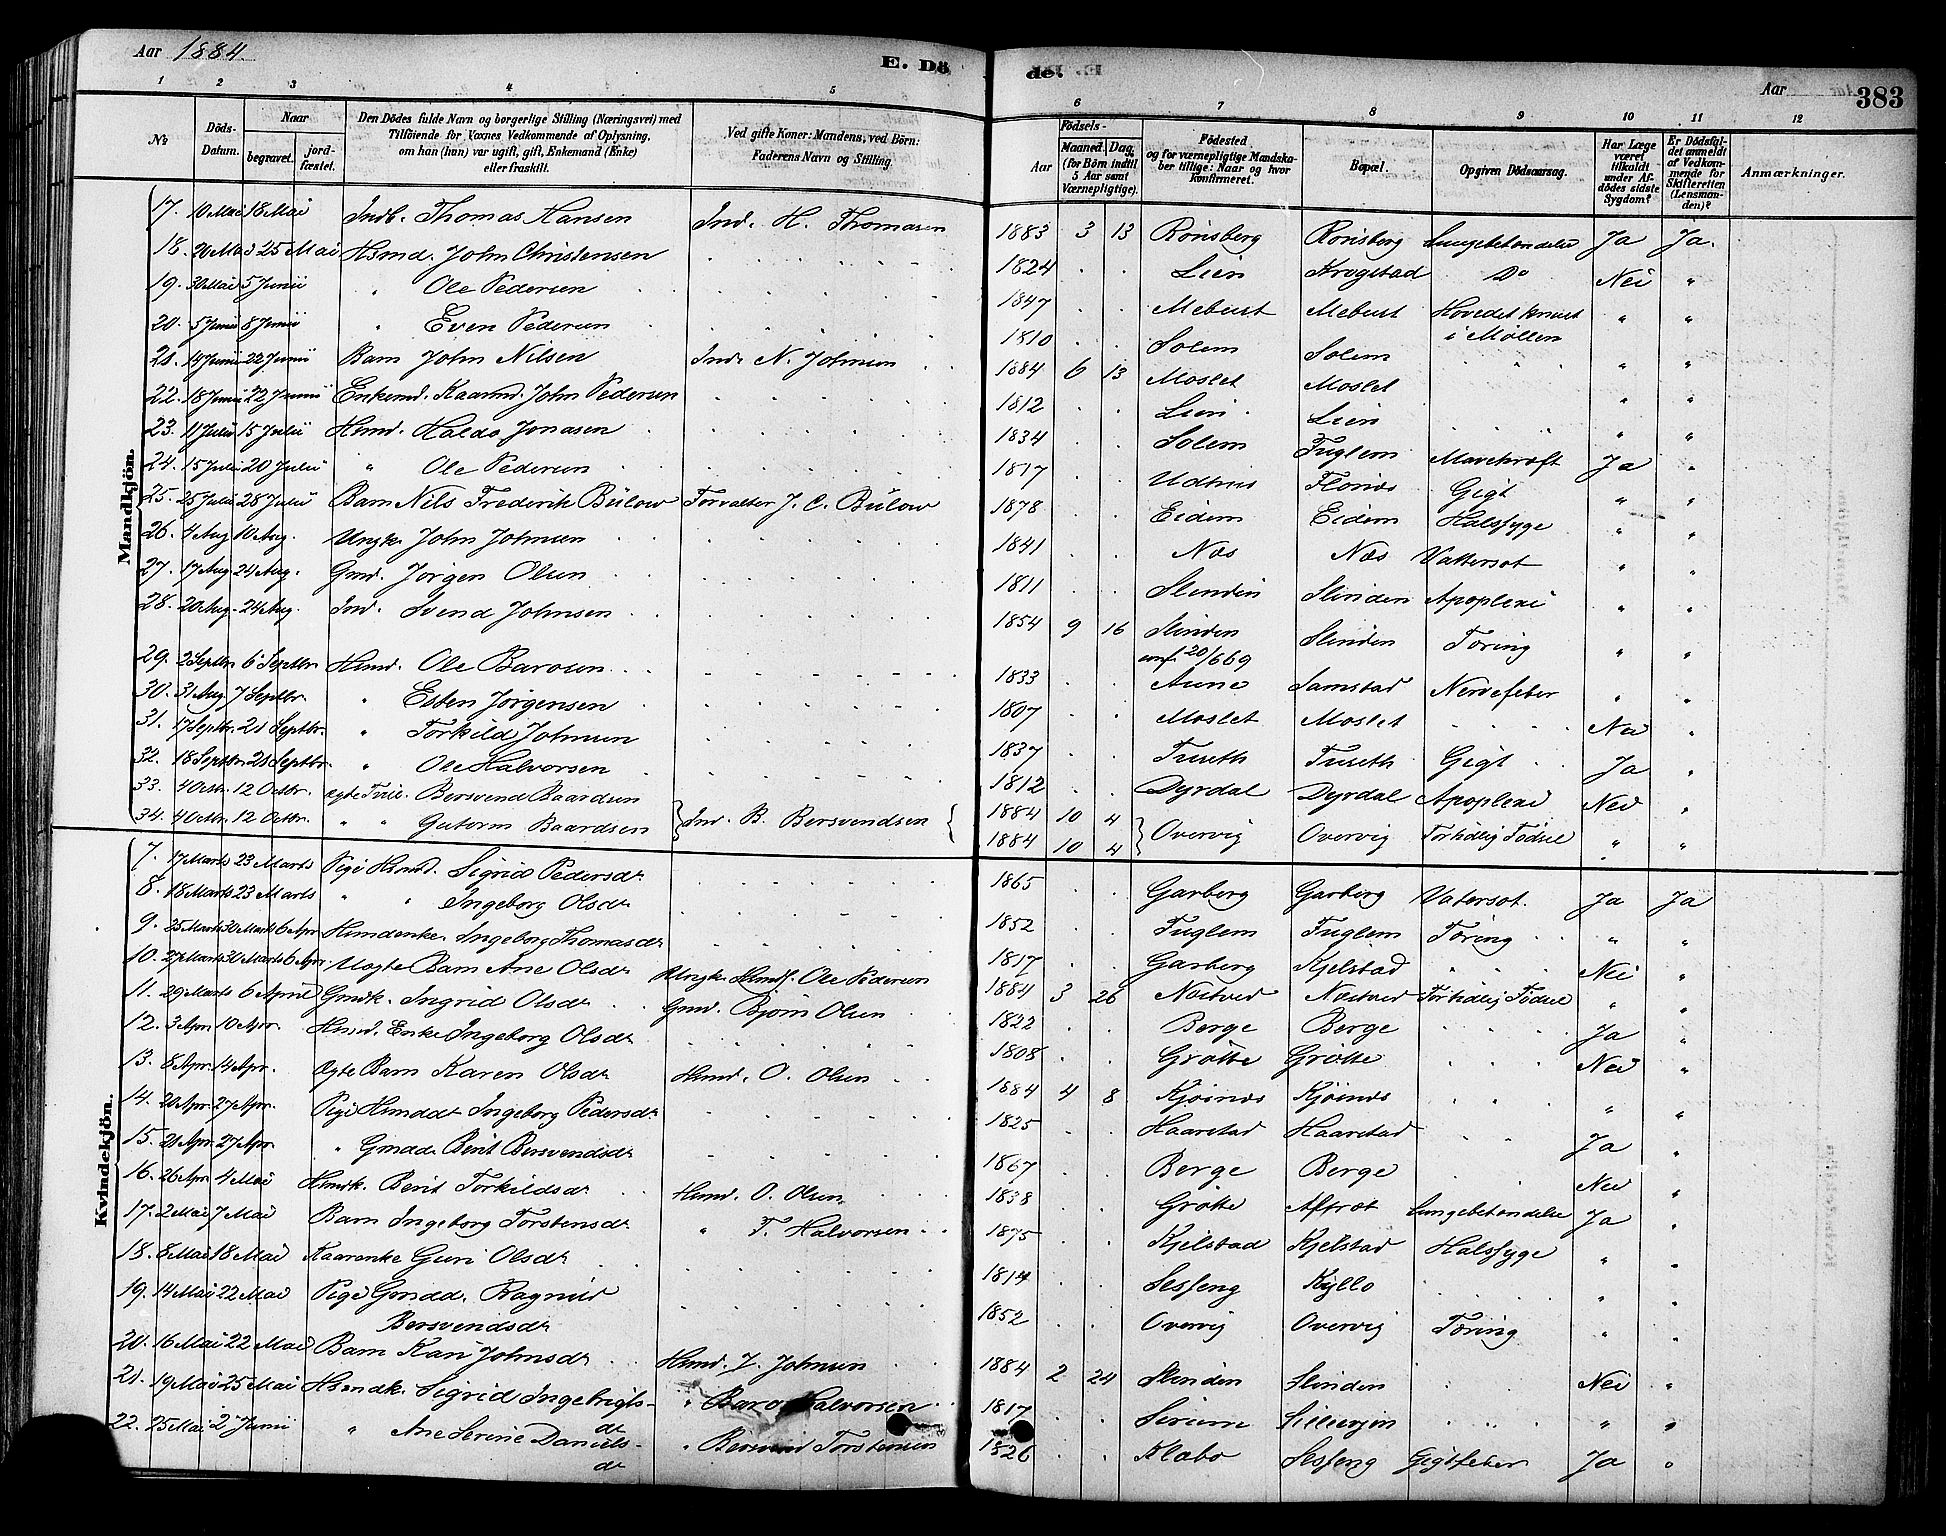 Aar 1884. E. Dö de. Aar 383
1 2 3 4 5 6 7 8 9 10 11 12
№ Döds-Datum. Naar begravet. jordfæstet. Den Dödes fulde Navn og borgerlige Stilling (Næringsvei) med Tilföiende for Voxnes Vedkommende af Oplysning, om han (hun) var ugift, gift, Enkemand (Enke) eller fraskilt. Ved gifte Koner: Mandens, ved Börn: Faderens Navn og Stilling. Födsels- Aar Maaned. Dag. (for Börn indtil 5 Aar samt Værnepligtige). Födested og for værnepligtige Mandskaber tillige: Naar og hvor konfirmeret. Bopæl. Opgiven Dödsaarsag. Har Læge været tilkaldt under Afdödes sidste Sygdom? Er Dödsfaldet anmeldt af Vedkommende for Skifteretten (Lensmanden)? Anmærkninger.
Mandkjön.
17. 10 Mai 18 Mai Indb. Thomas Hansen Ind. H. Thomasen 1883 3 13 Rönsberg Rönsberg Lungebetændelse Ja Ja.
18. 20 Mai 25 Mai Hsmd. John Christensen 1824 Lien Krogstad Do Nei "
19. 30 Mai 5 Junii " Ole Pedersen 1847 Mebust Mebust Hovedet knust i Møllen " "
20. 5 Junii 8 Junii " Even Pedersen 1810 Solem Solem " "
21. 14 Junii 22 Junii Barn John Nilsen Ind. N. Johnsen 1884 6 13 Moslet Moslet " "
22. 18 Junii 22 Junii Enkemd. Kaarmd. John Pedersen 1812 Lien Lien " "
23. 11 Julii 15 Julii Hsmd. Haldo Jonasen 1834 Solem Fuglem Mavekræft Ja "
24. 15 Julii 20 Julii " Ole Pedersen 1817 Udtnes Flønes Gigt " "
25. 25 Julii 28 Julii Barn Nils Frederik Bülow Forvalter J. C. Bülow 1878 Eidem Eidem Halssyge " "
26. 4 Aug 10 Aug. Ungk. John Johnsen 1841 Næs Næs Vattersot " "
27. 17 Aug. 24 Aug. Gmd. Jørgen Olsen 1811 Slinden Slinden Apoplexi " "
28. 20 Aug. 24 Aug. Ind. Svend Johnsen 1854 9 16 Slinden conf. 20/6 69 Slinden Tæring " "
29. 2 Septbr. 6 Septbr. Hsmd. Ole Barosen 1833 Aune Samstad Nervefeber " "
30. 31 Aug. 7 Septbr. " Esten Jørgensen 1807 Moslet Moslet Nei "
31. 17 Septbr. 21 Septbr. " Torkild Johnsen 1837 Tuseth Tuseth Gigt Ja "
32. 18 Septbr. 21 Septbr. " Ole Halvorsen 1812 Dyrdal Dyrdal Apoplexi Nei "
33. 4 Octbr. 12 Octbr. Ægte Tvil. Bersvend Baardsen } Ind. B. Bersvendsen { 1884 10 4 } Overvig Overvig Fortidlig Fødsel " "
34. 4 Octbr. 12 Octbr. " " Gutorm Baardsen 1884 10 4
Kvindekjön.
7. 17 Marts 23 Marts Pige Hsmd. Sigrid Pedersdr 1865 Garberg Garberg Vatersot. Ja Ja
8. 18 Marts 23 Marts " " Ingeborg Olsdr 1852 Fuglem Fuglem Tæring " "
9. 25 Marts 30 Marts 6 Apr Hsmdenke. Ingeborg Thomasdr 1817 Garberg Kjelstad " " Nei "
10. 27 Marts 30 Marts 6 Apr. Uægte Barn Ane Olsdr Ungk. Hsmdf. Ole Pedersen 1884 3 26 Næstved Næstved Fortidlig Fødsel " "
11. 29 Marts 6 April Gmdk. Ingrid Olsdr Gmd. Bjørn Olsen 1822 Berge Berge Ja "
12. 3 Apr. 10 Apr. Hsmd. Enke Ingeborg Olsdr 1808 Grøtte Grøtte Nei "
13. 8 Apr. 14 Apr. Ægte Barn Karen Olsdr Hsmd. O. Olsen 1884 4 8 Kjøsnes Kjøsnes " "
14. 20 Apr. 27 Apr. Pige Hsmddr Ingeborg Pedersdr 1825 Haarstad Haarstad Ja "
15. 21 Apr. 27 Apr. " Gmdd. Berit Bersvendsdr 1867 Berge Berge Nei "
16. 26 Apr. 4 Mai Hsmdk. Berit Torkildsdr Hsmd. O. Olsen 1838 Grøtte Aftret Lungebetændelse Ja "
17. 2 Mai 7 Mai Barn Ingeborg Torstensdr " T. Halvorsen 1875 Kjelstad Kjelstad Halssyge " "
18. 8 Mai 18 Mai Kaarenke Guri Olsdr 1814 Sesseng Kyllo " "
19. 14 Mai 22 Mai Pige Gmdd. Ragnild Bersvendsdr 1852 Overvig Overvig Tæring " "
20. 16 Mai 22 Mai Barn Kari Johnsdr Hsmd. J. Johnsen 1884 2 24 Slinden Slinden Nei "
21. 19 Mai 25 Mai Hsmdk. Sigrid Ingebrigtsdr " Baro Halvorsen 1817 " "
22. 25 Mai 2 Junii " Ane Serine Danielsdr " Bersvend Torstensen 1826 Klæbo Sesseng Gigtfeber Ja "